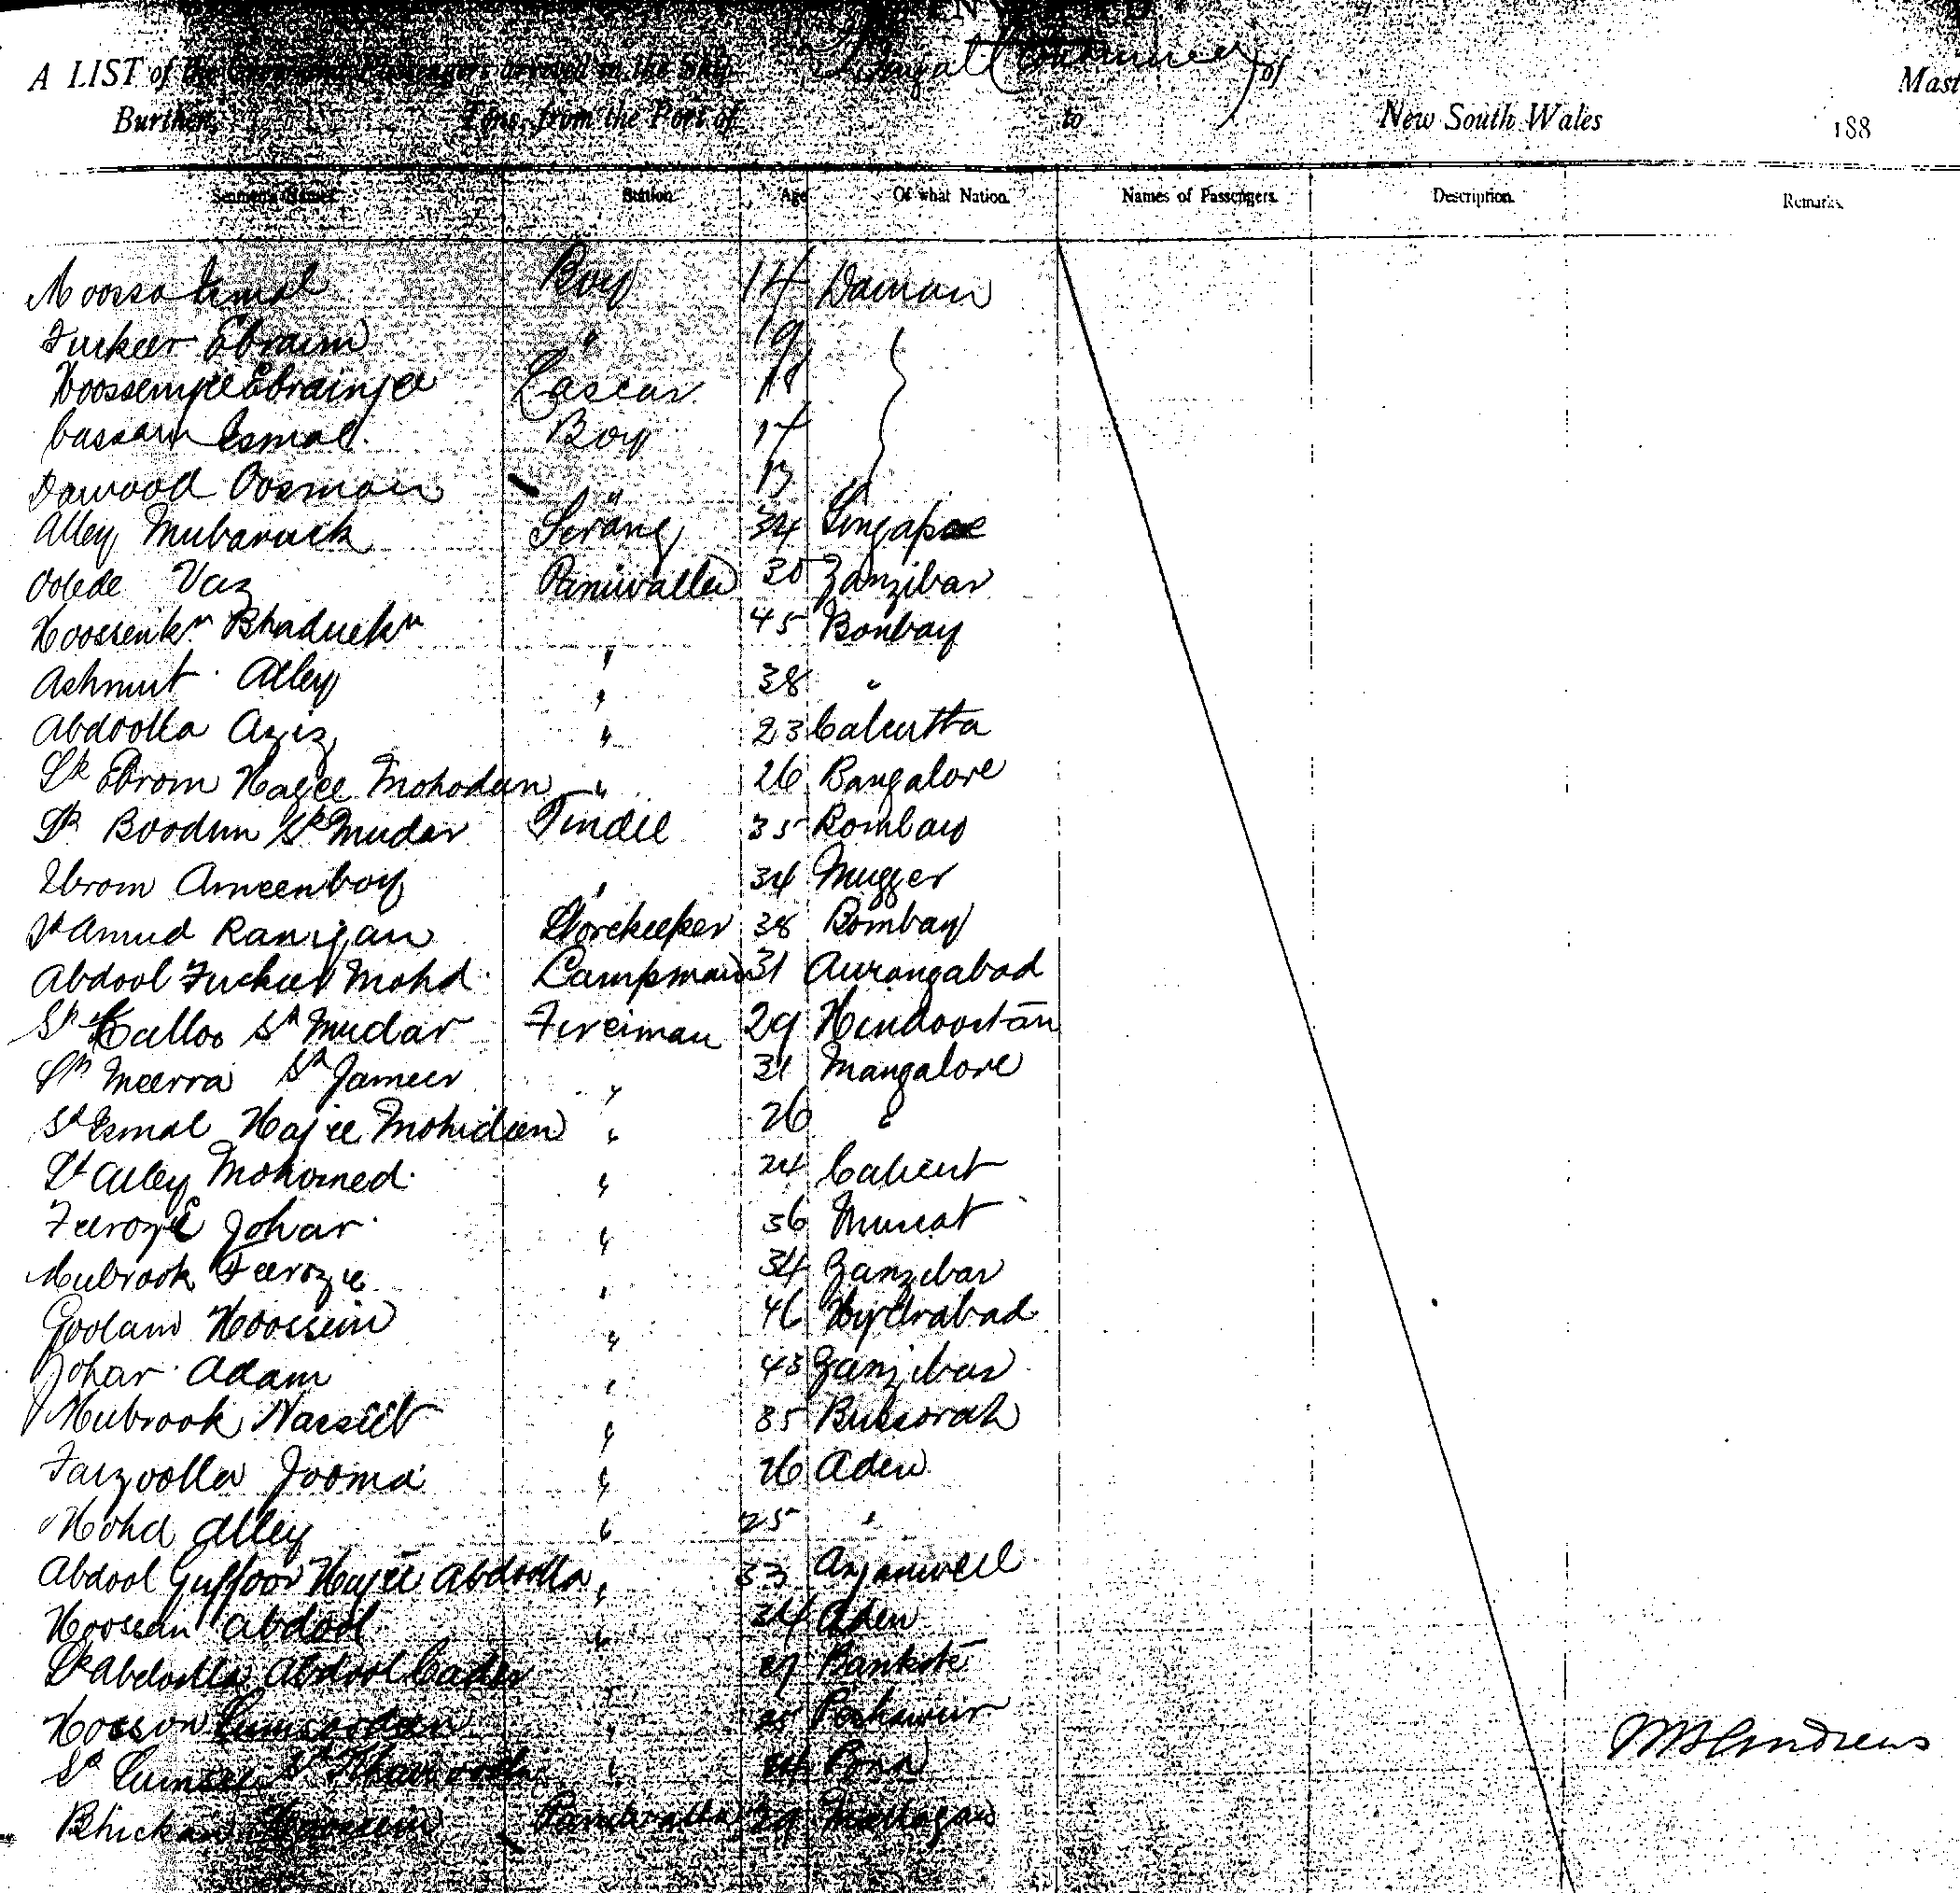 A LIST of the Crew and Passengers arrived in the Ship of Mast
Burthen, Tons, from the Port of to New South Wales 188
Seamen's Names. Station. Age Of what Nation. Names of Passengers. Description. Remarks.
Moossa Esmal Boy 14 Daman
Fuckeer Ebraim " 19
Hoossemjee Ebraimjee Lascar 18
Cassam Esmal. Boy 14
Dawood Oosman " 13
Alley Mubaruck Serang 34 Singapore
Oolede Vaz Paniwalla 30 Zanzibar
Hoossenkn Bhaduckn " 45 Bombay
Achmut Alley " 38 "
Abdoolla Aziz " 23 Calcutta
Sk Ebrom Hajee Mohodan " 26 Bangalore
Sk Boodun Sk Mudar Tindel 35 Bombay
Ebrom Ameenboy " 34 Mugger
Sk Amud Ranijan Storekeeper 38 Bombay
Abdool Fuckeer Mohd Lampman 31 Aurangabad
Sk Calloo Sk Mudar Fireiman 29 Hindoostan
Sk Meerra Sk Jameer " 31 Mangalore
Sk Esmal Hajee Mohideen " 26 "
Sk Alley Mohomed. " 24 Calicut
Feerozie Johar " 36 Muscat
Mubrook Feerozie " 34 Zanzibar
Goolam Hoossein " 46 Hydrabad
Johar Adam " 43 Zanzibar
Mubrook Nassieb " 35 Bussorah
Faizoolla Jooma " 26 Aden
Mohd Alley " 25 "
Abdool Guffoor Hajee Abdoolla " 33 Anjanwell
Hoossein Abdool " 34 Aden
Sk Abdoolla Abdool Cader " 27 Bankote
Hosson " Peshawur
Sk Sk "
Bhickan Hoossein Paniwalla 29